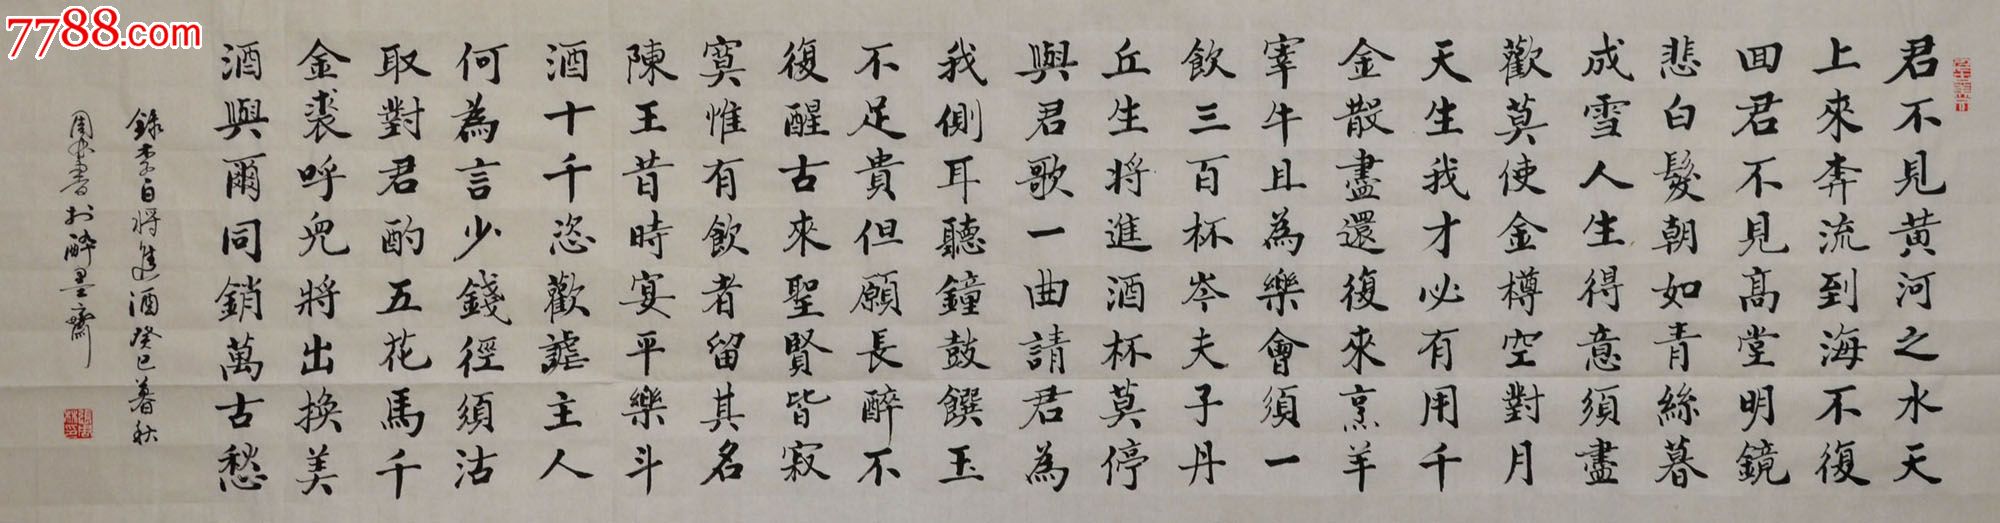 君不見黃河之水天
上來奔流到海不復
回君不見高堂明鏡
悲白髮朝如青絲暮
成雪人生得意須盡
歡莫使金樽空對月
天生我才必有用千
金散盡還復來烹羊
宰牛且為樂會須一
飲三百杯岑夫子丹
丘生將進酒杯莫停
與君歌一曲請君為
我側耳聽鐘鼓饌玉
不足貴但願長醉不
復醒古來聖賢皆寂
寞惟有飲者留其名
陳王昔時宴平樂斗
酒十千恣歡謔主人
何為言少錢徑須沽
取對君酌五花馬千
金裘呼兒將出換美
酒與爾同銷萬古愁
錄李白將進酒癸巳暮秋
書於醉墨齋
7788.com